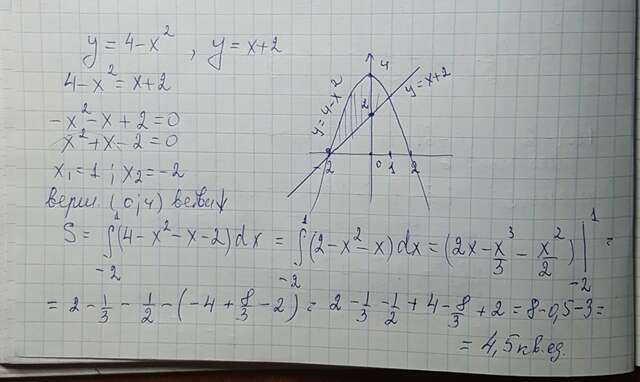 y = 4-x², y = x+2
4-x² = x+2
-x²-x+2=0
x²+x-2=0
x₁=1; x₂=-2
верш. (0,4) ветви↓
y=4-x²
y=x+2
4
2
-2
0
1
2
S = ∫₋₂¹(4-x²-x-2)dx = ∫₋₂¹(2-x²-x)dx = (2x-x³/3-x²/2)|₋₂¹ =
= 2-1/3-1/2-(-4+8/3-2) = 2-1/3-1/2+4-8/3+2=8-0,5-3=
= 4,5 кв.ед.